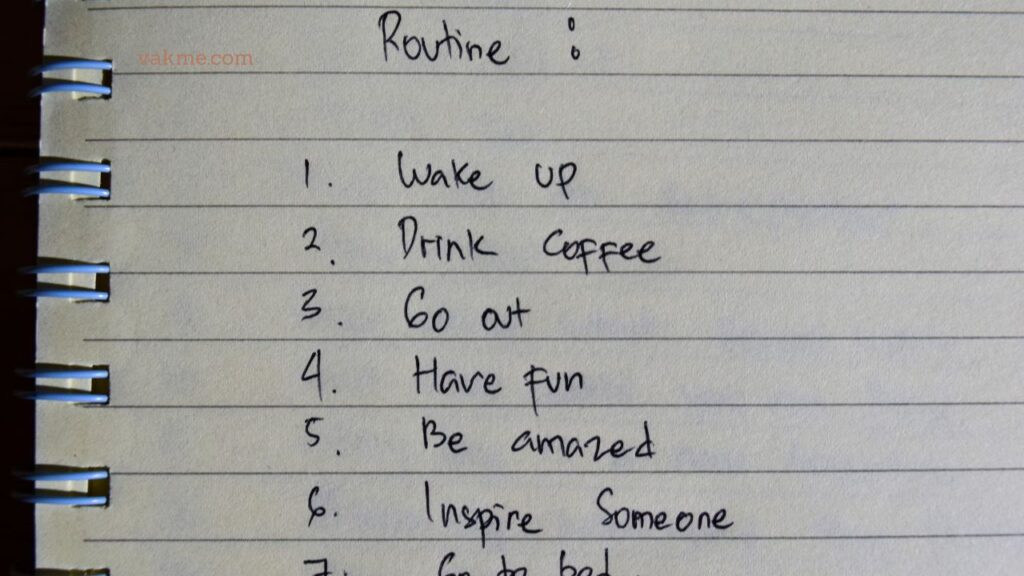 Routine :
vakme.com
1. Wake up
2. Drink coffee
3. Go out
4. Have fun
5. Be amazed
6. Inspire Someone
7. Go to bed.